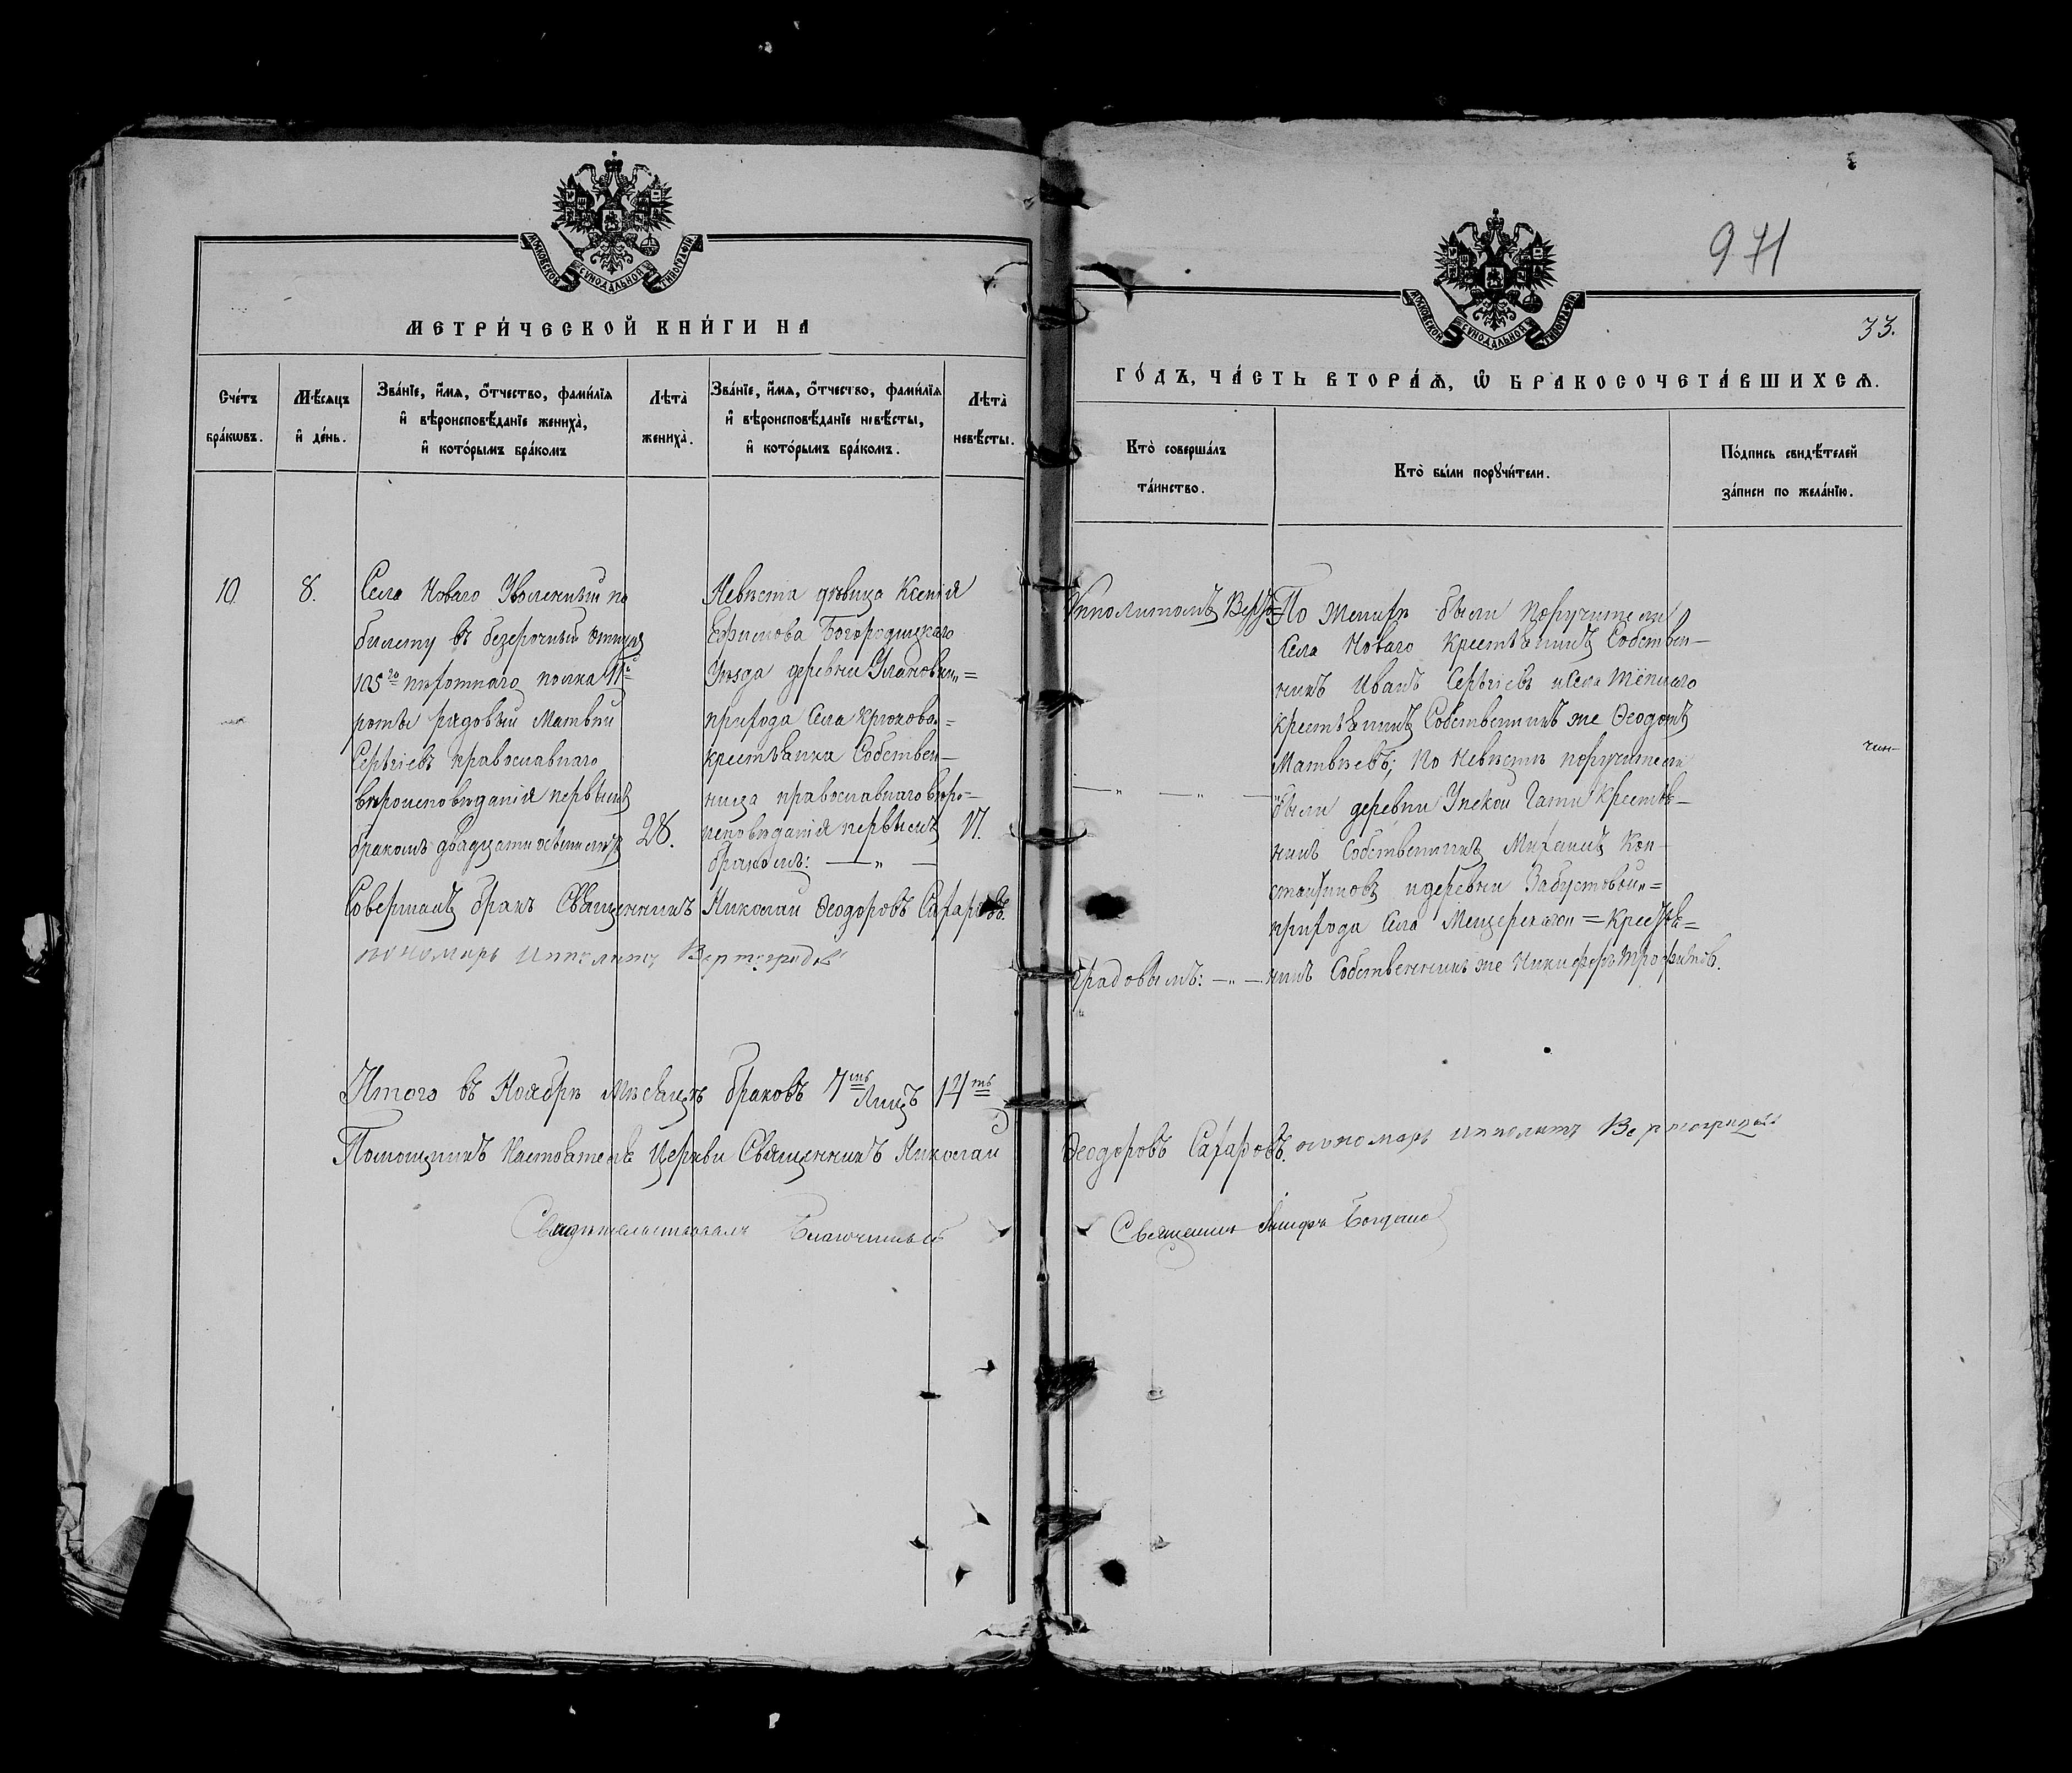 МОСКОВСКОЙ СѴНОДАЛЬНОЙ ТИПОГРАФІИ
МЕТРИ́ЧЕСКОЙ КНИ́ГИ НА
Сче́тъ бра́кѡвъ.
Мѣ́сяцъ и҆ де́нь.
Зва́нїе, и҆́мѧ, ѻ҆́тчество, фами́лїѧ и҆ вѣроисповѣ́данїе женихà, и҆ кото́рымъ бра́комъ
Лѣтà женихà.
Зва́нїе, и҆́мѧ, ѻ҆́тчество, фами́лїѧ и҆ вѣроисповѣ́данїе невѣ́сты, и҆ кото́рымъ бра́комъ.
Лѣтà невѣ́сты.
10.
8.
Села Новаго Уволенный по
билету въ безсрочный отпускъ
105го пѣхотнаго полка 11й
роты рядовый Матвѣй
Сергѣевъ православнаго
вѣроисповѣданія первымъ
бракомъ двадцати осьми лѣтъ
28.
Невѣста дѣвица Ксенія
Ефимова Богородицкаго
Уѣзда деревни
прихода Села Крюкова„=
крестьянка Собствен—
ница православнаго вѣро—
исповѣданія первымъ
бракомъ: — „ —
17.
Совершалъ бракъ Священникъ Николай Ѳеодоровъ Сахаровъ.
пономарь Ипполитъ Вертоградовъ
Итого въ Ноябрѣ Мѣсяцѣ браковъ 7мь Лицъ 14ть
Помощникъ Настоятеля Церкви Священникъ Николай
Свидѣтельствовалъ Благочинный
971
МОСКОВСКОЙ СѴНОДАЛЬНОЙ ТИПОГРАФІИ
33.
ГО́ДЪ, ЧА́СТЬ ВТОРА́Ѧ, Ѽ БРАКОСОЧЕТА́ВШИХСѦ.
Ктò соверша́лъ та́инство.
Ктò бы́ли порꙋчи́тели.
По́дпись свидѣ́телей за́писи по жела́нїю.
Ипполитомъ Верто=
градовымъ: — „ —
По Женихѣ были поручители
Села Новаго Крестьянинъ Собствен—
никъ Иванъ Сергѣевъ и Села Тёплаго
крестьянинъ Собственникъ же Ѳеодотъ
Матвѣевъ; По Невѣстѣ поручители
были деревни Упской Гати Крестья—
нинъ Собственникъ Михаилъ Кон—
стантиновъ и деревни
прихода Села Мещерскаго„= Крестья=
нинъ Собственникъ же Никифоръ Трофимов.
Ѳеодоровъ Сахаровъ. пономарь Ипполитъ Вертоградовъ
Священникъ